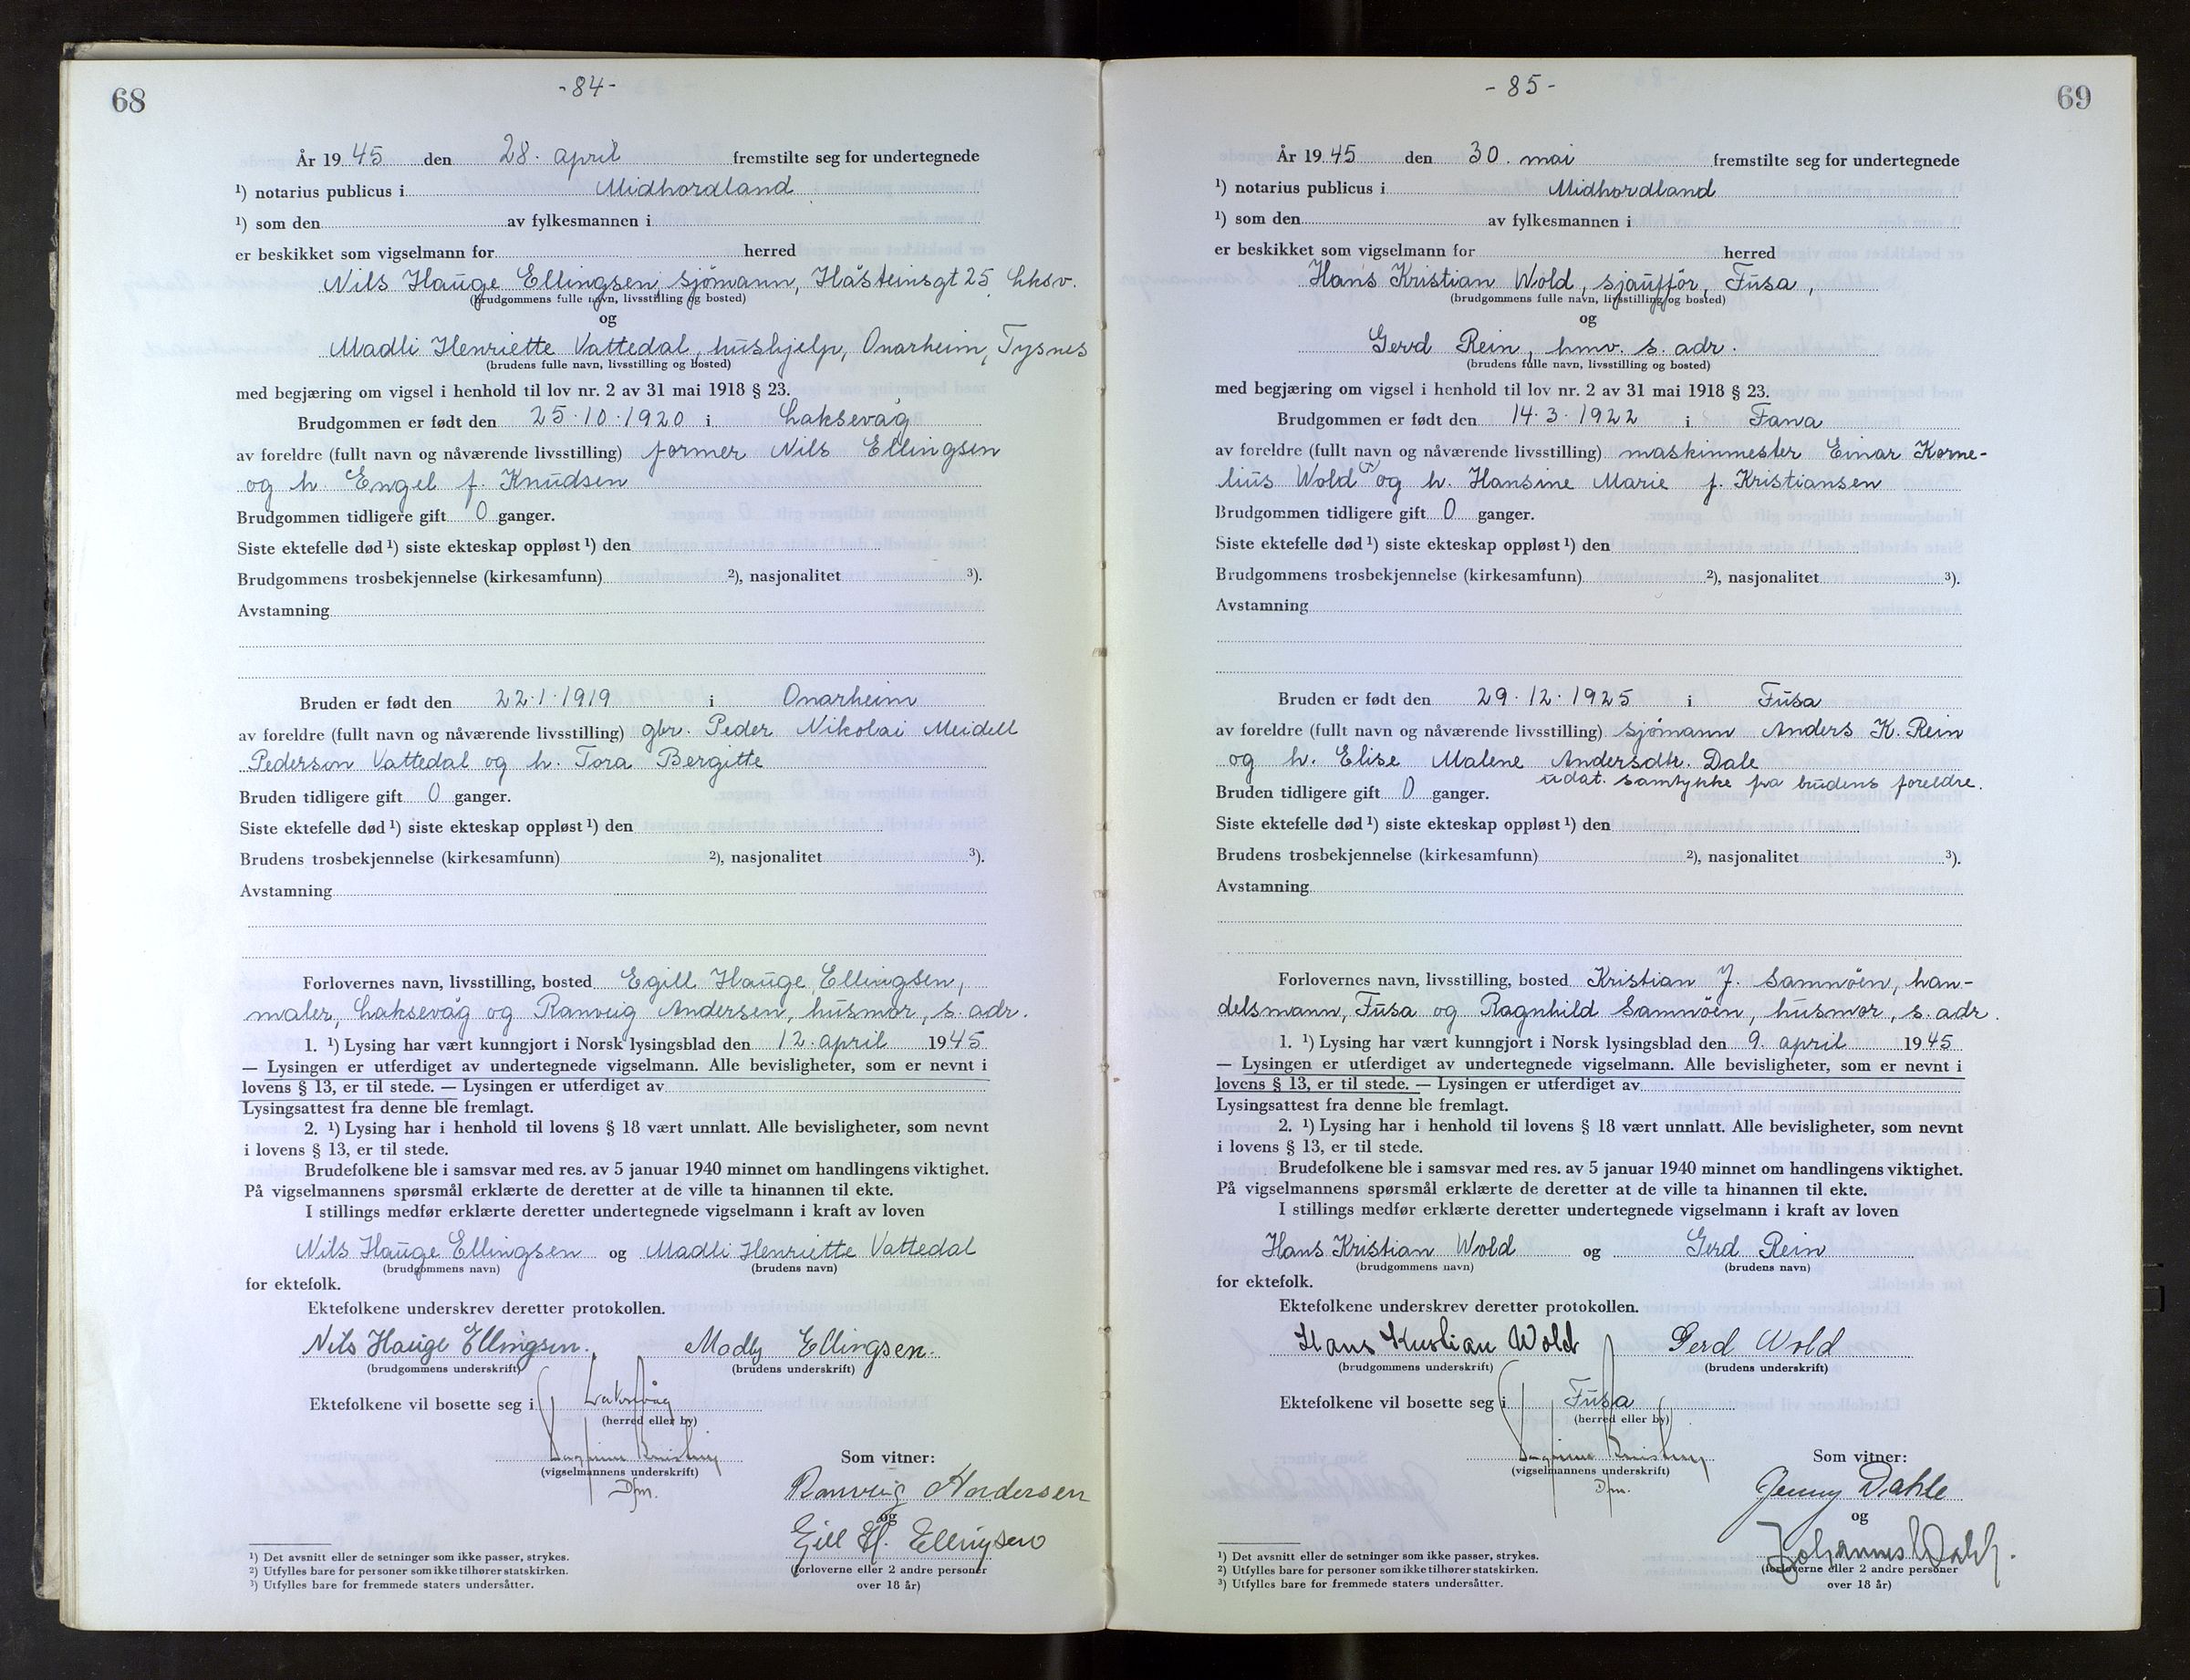 68
-84-
År 19 45 den 28. april fremstilte seg for undertegnede
¹) notarius publicus i Midhordland
¹) som den av fylkesmannen i
er beskikket som vigselmann for herred
Nils Hauge Ellingsen, sjömann, Håsteinsgt 25, Lksv.
(brudgommens fulle navn, livsstilling og bosted)
og
Madli Henriette Vattedal, hushjelp, Onarheim, Tysnes
(brudens fulle navn, livsstilling og bosted)
med begjæring om vigsel i henhold til lov nr. 2 av 31 mai 1918 § 23.
Brudgommen er født den 25.10.1920 i Laksevåg
av foreldre (fullt navn og nåværende livsstilling) former Nils Ellingsen
og h. Engel f. Knudsen
Brudgommen tidligere gift 0 ganger.
Siste ektefelle død ¹) siste ekteskap oppløst ¹) den
Brudgommens trosbekjennelse (kirkesamfunn) ²), nasjonalitet ³).
Avstamning
Bruden er født den 22.1.1919 i Onarheim
av foreldre (fullt navn og nåværende livsstilling) gbr. Peder Nikolai Meidell
Pederson Vattedal og h. Tora Bergitte
Bruden tidligere gift 0 ganger.
Siste ektefelle død ¹) siste ekteskap oppløst ¹) den
Brudens trosbekjennelse (kirkesamfunn) ²), nasjonalitet ³).
Avstamning
Forlovernes navn, livsstilling, bosted Egill Hauge Ellingsen,
maler, Laksevåg og Ranveig Andersen, husmor, s. adr.
1. ¹) Lysing har vært kunngjort i Norsk lysingsblad den 12. april 1945
— Lysingen er utferdiget av undertegnede vigselmann. Alle bevisligheter, som er nevnt i
lovens § 13, er til stede. — Lysingen er utferdiget av
Lysingsattest fra denne ble fremlagt.
2. ¹) Lysing har i henhold til lovens § 18 vært unnlatt. Alle bevisligheter, som nevnt
i lovens § 13, er til stede.
Brudefolkene ble i samsvar med res. av 5 januar 1940 minnet om handlingens viktighet.
På vigselmannens spørsmål erklærte de deretter at de ville ta hinannen til ekte.
I stillings medfør erklærte deretter undertegnede vigselmann i kraft av loven
Nils Hauge Ellingsen og Madli Henriette Vattedal
(brudgommens navn) (brudens navn)
for ektefolk.
Ektefolkene underskrev deretter protokollen.
Nils Hauge Ellingsen. Madly Ellingsen.
(brudgommens underskrift) (brudens underskrift)
Ektefolkene vil bosette seg i Laksevåg
(herred eller by)
(vigselmannens underskrift)
Dfm.
Som vitner:
Ranveig Andersen
og
Egill H. Ellingsen
(forloverne eller 2 andre personer
over 18 år)
¹) Det avsnitt eller de setninger som ikke passer, strykes.
²) Utfylles bare for personer som ikke tilhører statskirken.
³) Utfylles bare for fremmede staters undersåtter.
69
-85-
År 19 45 den 30. mai fremstilte seg for undertegnede
¹) notarius publicus i Midhordland
¹) som den av fylkesmannen i
er beskikket som vigselmann for herred
Hans Kristian Wold, sjauffór, Fusa,
(brudgommens fulle navn, livsstilling og bosted)
og
Gerd Rein, hmv. s. adr.
(brudens fulle navn, livsstilling og bosted)
med begjæring om vigsel i henhold til lov nr. 2 av 31 mai 1918 § 23.
Brudgommen er født den 14.3.1922 i Fana
av foreldre (fullt navn og nåværende livsstilling) maskinmester Einar Korne-
lius Wold og h. Hansine Marie f. Kristiansen
Brudgommen tidligere gift 0 ganger.
Siste ektefelle død ¹) siste ekteskap oppløst ¹) den
Brudgommens trosbekjennelse (kirkesamfunn) ²), nasjonalitet ³).
Avstamning
Bruden er født den 29.12.1925 i Fusa
av foreldre (fullt navn og nåværende livsstilling) sjömann Anders K. Rein
og h. Elise Malene Andersdtr. Dale
udat. samtykke fra brudens foreldre.
Bruden tidligere gift 0 ganger.
Siste ektefelle død ¹) siste ekteskap oppløst ¹) den
Brudens trosbekjennelse (kirkesamfunn) ²), nasjonalitet ³).
Avstamning
Forlovernes navn, livsstilling, bosted Kristian J. Samnöen, han-
delsmann, Fusa og Ragnhild Samnöen, husmor, s. adr.
1. ¹) Lysing har vært kunngjort i Norsk lysingsblad den 9. april 1945
— Lysingen er utferdiget av undertegnede vigselmann. Alle bevisligheter, som er nevnt i
lovens § 13, er til stede. — Lysingen er utferdiget av
Lysingsattest fra denne ble fremlagt.
2. ¹) Lysing har i henhold til lovens § 18 vært unnlatt. Alle bevisligheter, som nevnt
i lovens § 13, er til stede.
Brudefolkene ble i samsvar med res. av 5 januar 1940 minnet om handlingens viktighet.
På vigselmannens spørsmål erklærte de deretter at de ville ta hinannen til ekte.
I stillings medfør erklærte deretter undertegnede vigselmann i kraft av loven
Hans Kristian Wold og Gerd Rein
(brudgommens navn) (brudens navn)
for ektefolk.
Ektefolkene underskrev deretter protokollen.
Hans Kristian Wold Gerd Wold
(brudgommens underskrift) (brudens underskrift)
Ektefolkene vil bosette seg i Fusa
(herred eller by)
(vigselmannens underskrift)
Dfm.
Som vitner:
Jenny Dahle
og
Johannes Dahle
(forloverne eller 2 andre personer
over 18 år)
¹) Det avsnitt eller de setninger som ikke passer, strykes.
²) Utfylles bare for personer som ikke tilhører statskirken.
³) Utfylles bare for fremmede staters undersåtter.